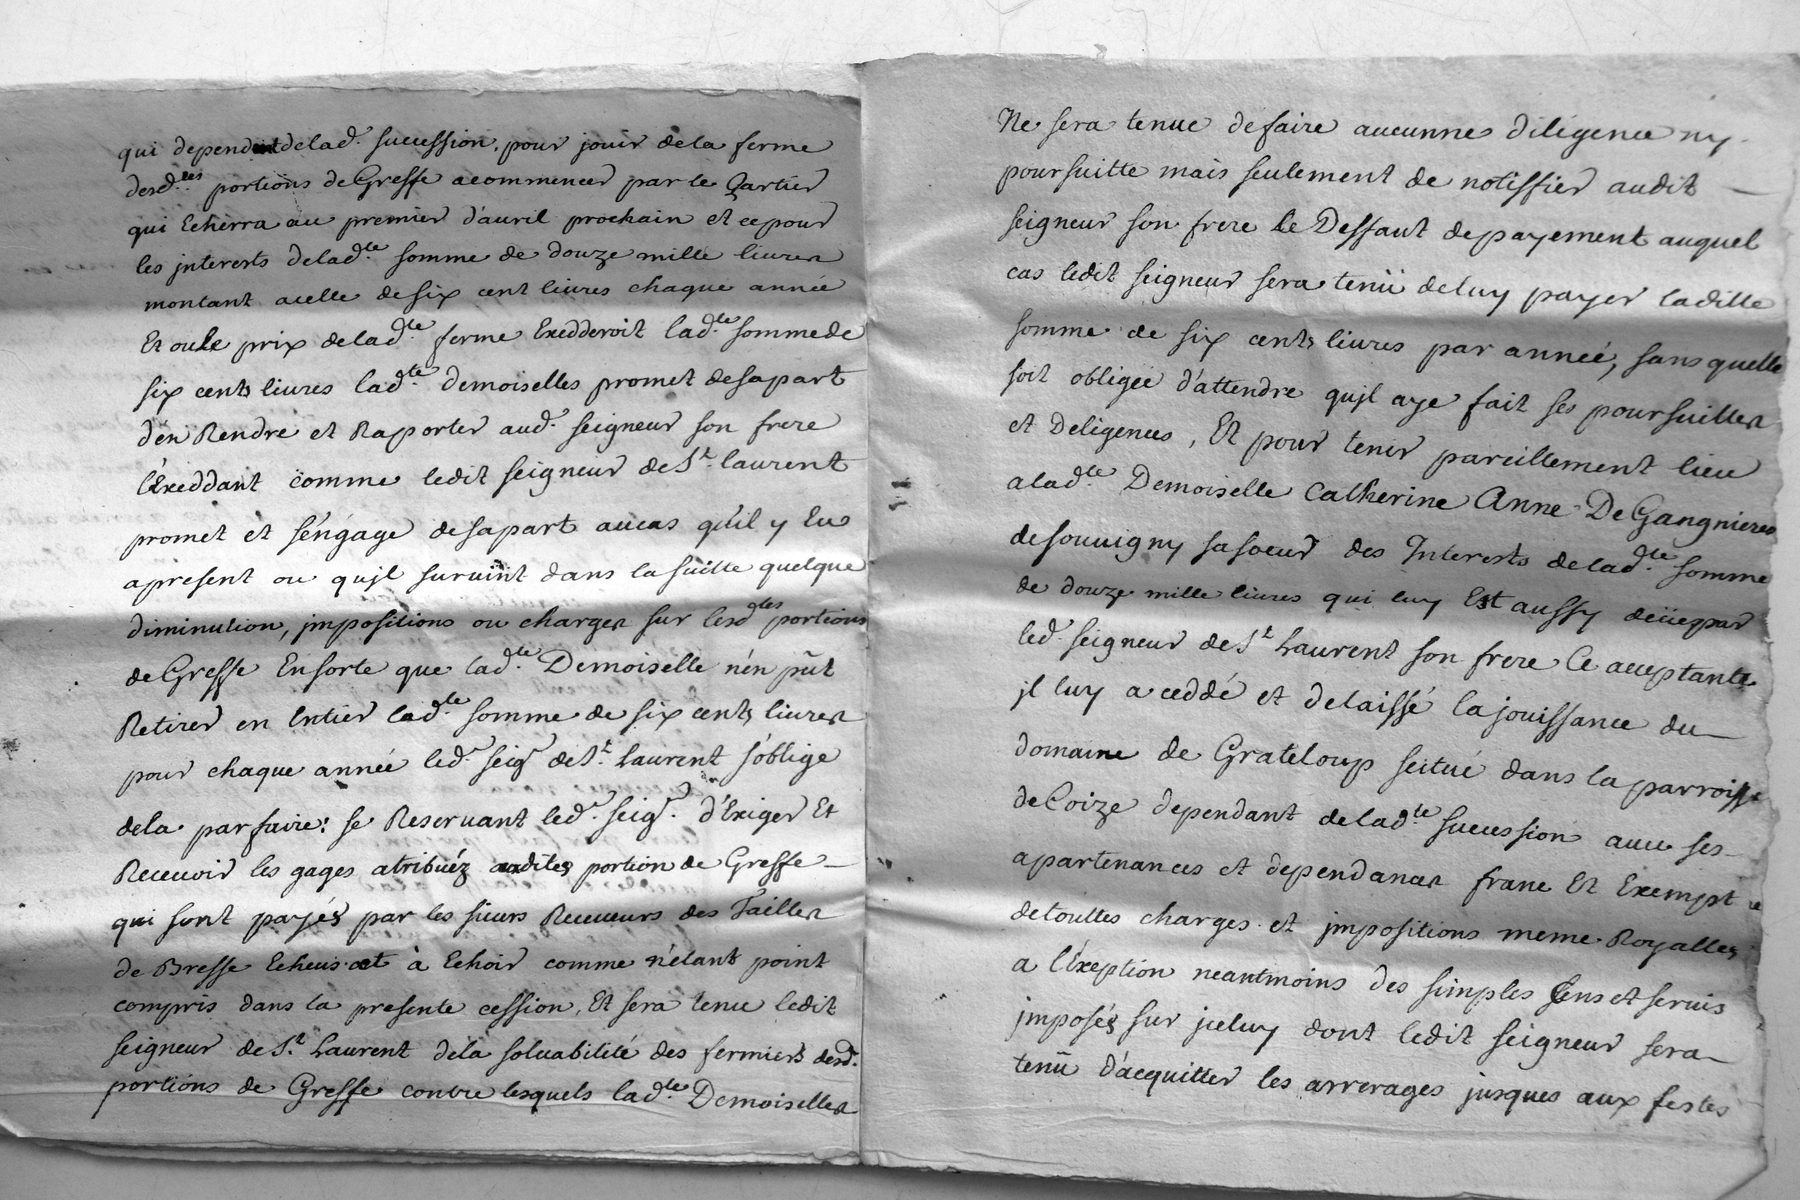 qui dependent delad. sucession, pour jouir dela ferme
desd.tes portions de Greffe acommencer par le Qartier
qui Echerra au premier d'auril prochain et ce pour
les jnterests delad.te somme de douze mille liures
montant acelle de six cent liures chaque année
Et ou le prix delad.te ferme Exedderoit lad.te somme de
six cents liures lad.te demoiselles promet desapart
d'en Rendre et Raporter aud. seigneur son frere
l'Exeddant comme ledit seigneur de St. laurent
promet et s'engage desapart aucas qu'il y Eu
apresent ou qujl suruint dans la suitte quelque
diminution, jmpositions ou charges sur lesd.tes portions
de Greffe En sorte que lad.te Demoiselle n'en pût
Retirer en Entier lad.te somme de six cents liures
pour chaque année led.r seig.r de St. laurent s'oblige
dela parfaire: se Reseruant led.r seig.r d'Exiger Et
Receuoir les gages atribuéz audites portion de Greffe
qui sont payés par les sieurs Receueurs des Tailles
de Bresse Echeus et à Echoir comme n'étant point
compris dans la presente cession, Et sera tenu ledit
seigneur de St. laurent dela soluabilité des fermiers desd.
portions de Greffe contre lesquels lad.te Demoiselles
Ne sera tenue defaire aucunne diligence ny
poursuitte mais seulement de notiffier audit
seigneur son frere le Deffaut depayement auquel
cas ledit seigneur sera tenü deluy payer laditte
somme de six cents liures par année, sans quelle
soit obligée d'attendre qujl aye fait ses poursuittes
et Deligences, Et pour tenir pareillement lieu
alad.te Demoiselle Catherine Anne De Gangnieres
desouuigny sasoeur des Interests delad.te somme
de douze mille liures qui luy Est aussy deüepar
led. seigneur de St Laurent son frere Ce acceptante
jl luy a ceddé et delaissé lajouissance du
domaine de Grateloup scitué dans la parroisse
de Coize dependant delad.te sucession auec ses
apartenances et dependances franc Et Exempt
detouttes charges et jmpositions meme Royalles
a l'Exeption neantmoins des simples Cens et seruis
jmposés sur jceluy dont ledit seigneur sera
tenü d'acquitter les arrerages jusques aux festes